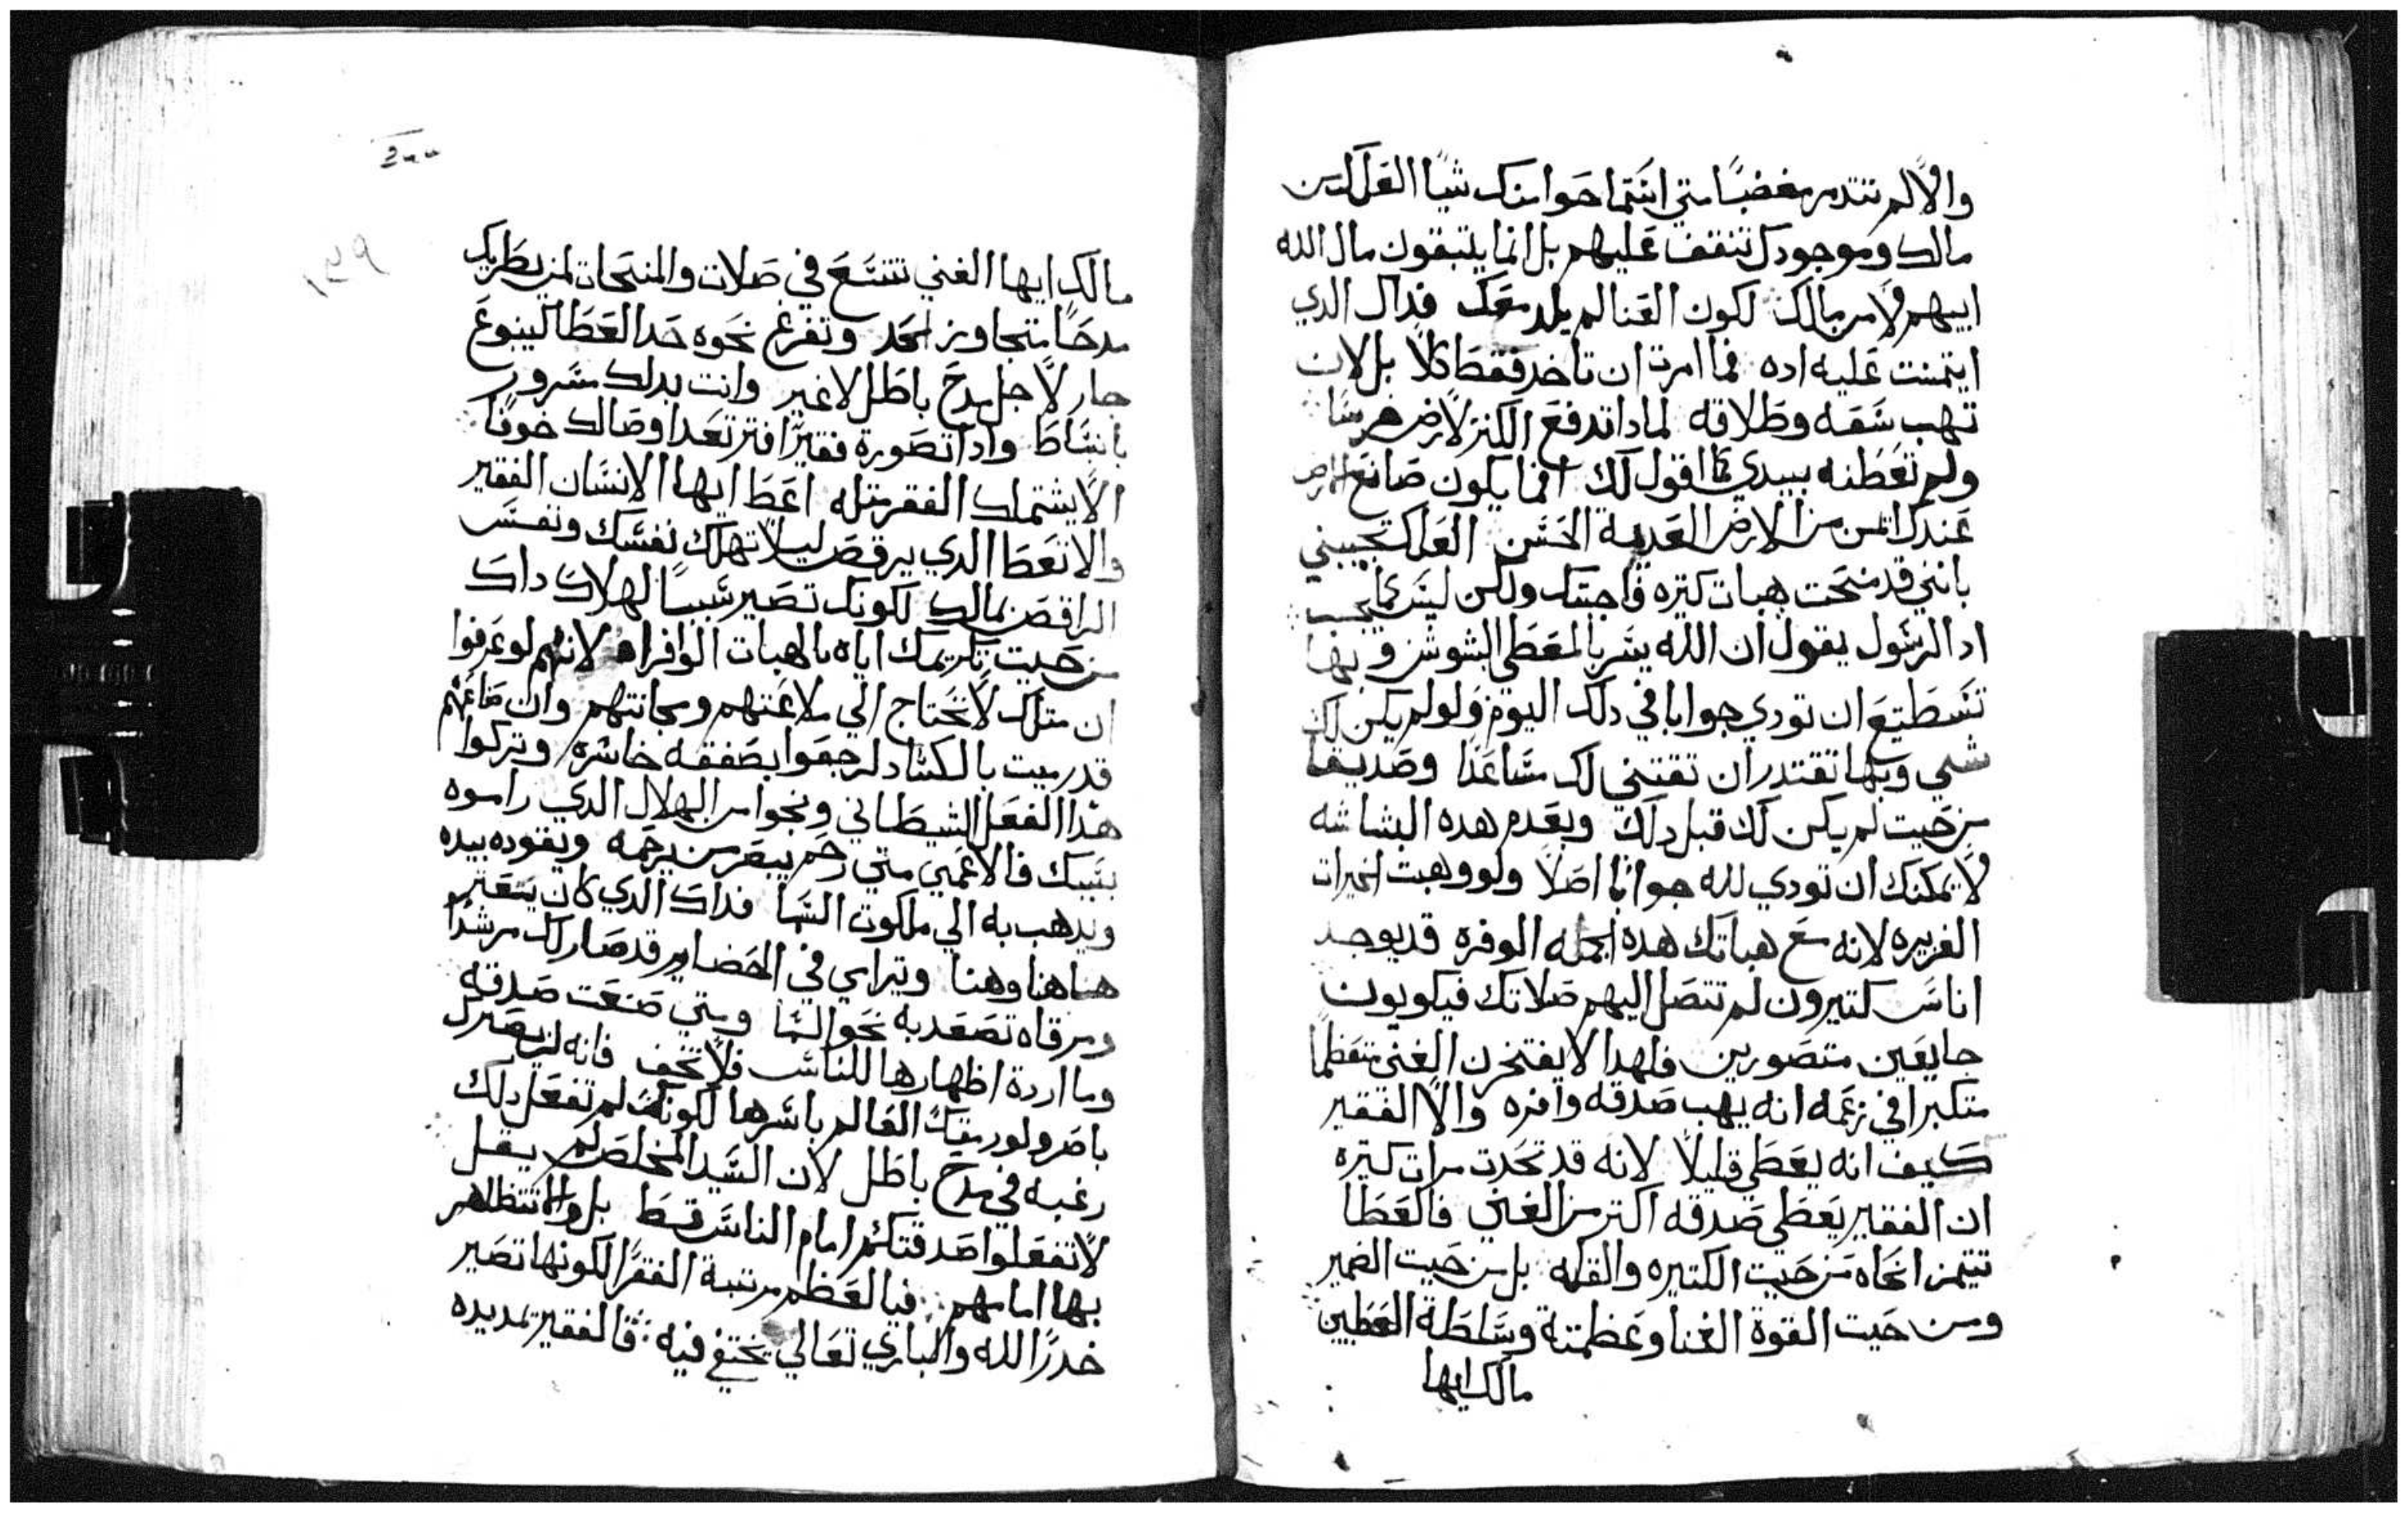 والا لم تتدمر مغضبًا متي استماحوا منك شيًا العلك من
مالك وموجودك تنفف عليهم بل انما يلتبقون مال الله
ابيهم ولا من مالك لكون الغنا لم يلد معك فداك الدي
ايتمنت عليه اده فما امرت ان تاخد فقط كلا بل لان
تهب شفقه وطلاقه لمادا تدفع الكنز لارض
ولم تعطنه بيدي كما اقول لك انما يكون صانع
عندك اتمن من الارض العديمة الحسن العلك تجيبني
بانني قد منحت هبات كتيره فاجبتك ولكن ليس كما يجب
اد الرسول يقول ان الله يسر بالمعطي البشوش وبها
تسطتيع ان تودي جوابا في دلك اليوم ولو لم يكن لك
شي وبها تقتدر ان تقتني لك مساعدًا وصديقا
من حيت لم يكن لك قبل دلك وبعدم هده البشاشه
لا يمكنك ان تودي لله جوابًا اصلا ولو وهبت الخيرات
الغزيره لانه مع هباتك هده الجمله الوفره قد يوجد
اناس كتيرون لم تتصل اليهم صلاتك فيكونون
جايعين متصورين فلهدا لا يفتخرن الغني متعظمًا
متكبرا في زعمه انه يهب صدقه وافره والا الفقير
كيف انه يعطي قليلا لانه قد تحدت مرات كتيره
ان الفقير يعطي صدقه اكتر من الغني فالعطا
تتيمز اتجاه من حيت الكتيره والقله بل من حيت الضمير
ومن حيت القوة الغنا وعظمتة وسلطة المعطيين
مالك ايها
مالك ايها الغني تتسع في صلات والمنحات لمن يطريك
مدحًا متجاوز الحد وتفرغ نحوه حد العطا كينبوع
جار لاجل مدح باطل لا غير وانت بدلك مسرور
بانبساط وادا تصورة فقيرًا فترتعد اوصالك خوفًا
الا يشتملك الفقر متله اعط ايها الانسان الفقير
والا تعط الدي يرقص ليلا تهلك نفسك ونفس
الراقص بمالك لكونك تصير سببًا لهلاك داك
من حيت تكريمك اياه بالهبات الوافراه لانهم لو عرفوا
ان متلك لا تحتاج الي ملاعتهم ومجانتهم وان صناعتهم
قد رميت بالكساد لرجعوا بصفقه خاسره وتركوا
هدا الفعل الشيطاني ونجوا من الهلاك الدي راموه
بسببك فالاعمي متي رحم يبصر من يرحمه ويقوده بيده
ويدهب به الي ملكوت السما فداك الدي كان يتعتر
هاهنا وهنا ويتراي في الحضاير قد صار لك مرشدًا
ومرقاه تصعد به نحو السما ومتي صنعت صدقه
وما اردة اظهارها للناس فلا تخف فانه لن يضرك
باضر ولو ربقك العالم باسرها لكونك لم تفعل دلك
رغبه في مدح باطل لان السيد المخلص لم يقل
لا تفعلوا صدقتكم امام الناس قسط بل والا تتظاهر
بها امامهم فيا لعظم مرتبة الفقرا لكونها تصير
خدرًا لله والباري تعالي يختفي فيه فالفقير تمد يده